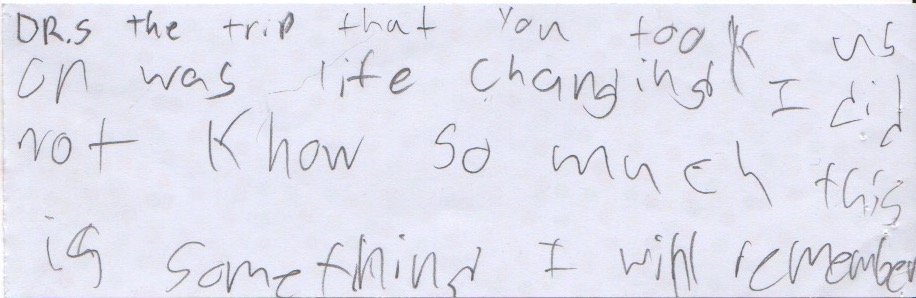 DR.S the trip that you took us
on was life changing I did
not know so much this
is something I will remember